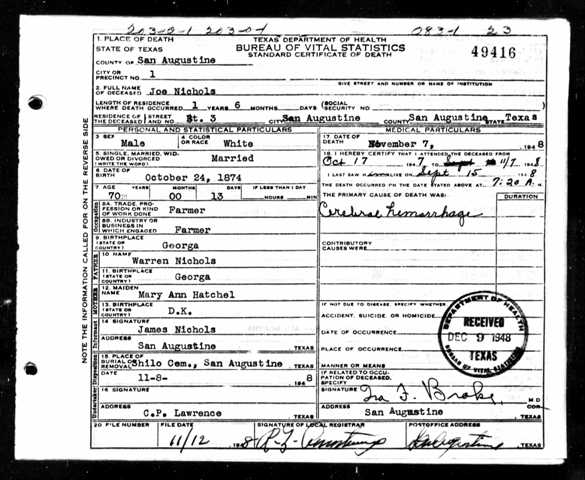 203-2-1 203-01 083-1 23
1. PLACE OF DEATH
STATE OF TEXAS
TEXAS DEPARTMENT OF HEALTH
BUREAU OF VITAL STATISTICS
STANDARD CERTIFICATE OF DEATH
49416
COUNTY OF San Augustine
CITY OR PRECINCT NO. 1
GIVE STREET AND NUMBER OR NAME OF INSTITUTION
2. FULL NAME OF DECEASED Joe Nichols
LENGTH OF RESIDENCE WHERE DEATH OCCURRED 1 YEARS 6 MONTHS DAYS (SOCIAL SECURITY NO.)
RESIDENCE OF THE DECEASED STREET AND NO. Rt. 3 CITY San Augustine COUNTY San Augustine STATE Texas
PERSONAL AND STATISTICAL PARTICULARS
3. SEX Male 4. COLOR OR RACE White
5. SINGLE, MARRIED, WIDOWED OR DIVORCED (WRITE THE WORD) Married
6. DATE OF BIRTH October 24, 1874
7. AGE YEARS MONTHS DAYS IF LESS THAN 1 DAY
70 00 13 HOURS MIN
8A. TRADE, PROFESSION OR KIND OF WORK DONE Farmer
8B. INDUSTRY OR BUSINESS IN WHICH ENGAGED Farmer
9. BIRTHPLACE (STATE OR COUNTRY) Georga
10. NAME Warren Nichols
11. BIRTHPLACE (STATE OR COUNTRY) Georga
12. MAIDEN NAME Mary Ann Hatchel
13. BIRTHPLACE (STATE OR COUNTRY) D.K.
14. SIGNATURE James Nichols
ADDRESS San Augustine TEXAS
15. PLACE OF BURIAL OR REMOVAL Shilo Cem., San Augustine TEXAS
DATE 11-8- 8
16. SIGNATURE
ADDRESS C.P. Lawrence TEXAS
MEDICAL PARTICULARS
17. DATE OF DEATH November 7, 1948
18. I HEREBY CERTIFY THAT I ATTENDED THE DECEASED FROM
Oct 17 194 TO 11/7 1948
I LAST SAW ALIVE ON Sept 15 1948
THE DEATH OCCURRED ON THE DATE STATED ABOVE AT 7:20 A. M.
THE PRIMARY CAUSE OF DEATH WAS: DURATION
Cerebral hemarrhage
CONTRIBUTORY CAUSES WERE:
IF NOT DUE TO DISEASE, SPECIFY WHETHER
ACCIDENT, SUICIDE, OR HOMICIDE
DATE OF OCCURRENCE
PLACE OF OCCURRENCE
MANNER OR MEANS
IF RELATED TO OCCUPATION OF DECEASED, SPECIFY
SIGNATURE M D
ADDRESS San Augustine COR TEXAS
DEPARTMENT OF HEALTH
RECEIVED
DEC 9 1948
TEXAS
BUREAU OF VITAL STATISTICS
20 FILE NUMBER FILE DATE SIGNATURE OF LOCAL REGISTRAR POSTOFFICE ADDRESS
11/12 1948 San Augustine TEXAS
NOTE THE INFORMATION CALLED FOR ON THE REVERSE SIDE
Occupation
FATHER
MOTHER
Informant
Undertaker Disposition